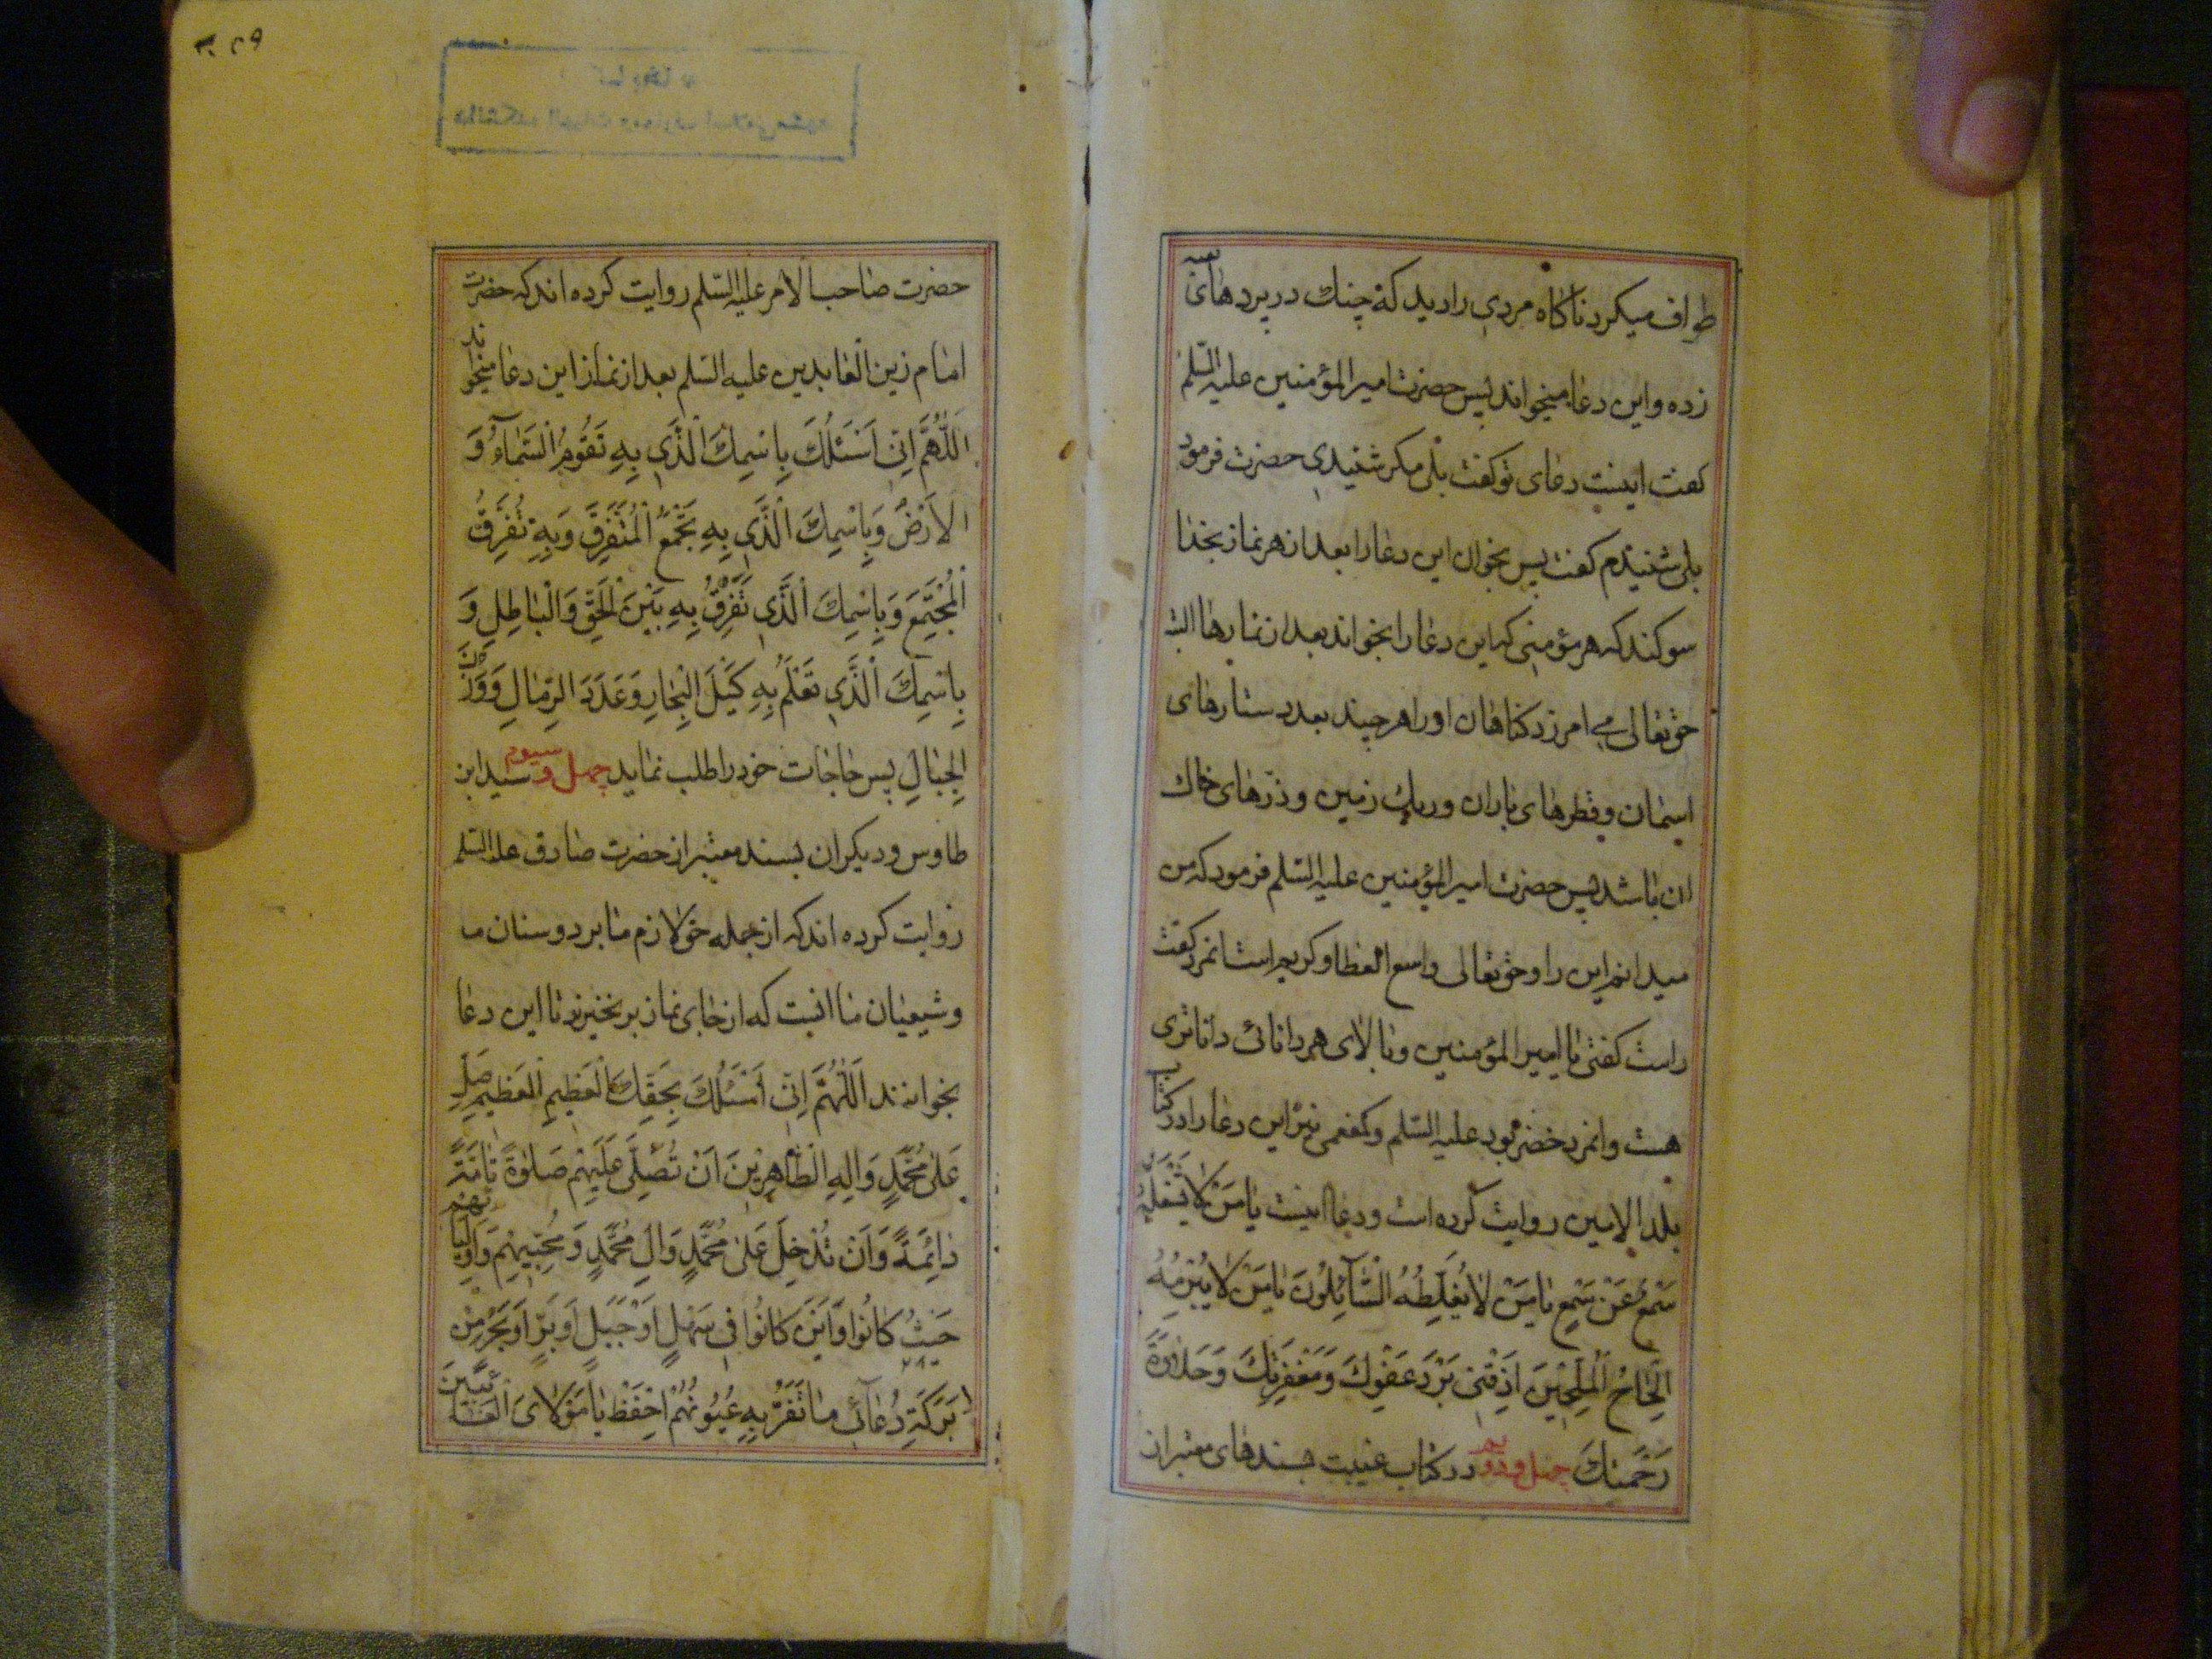 طواف میکرد ناکاه مردی را دید که چنک در پردهای کعبه
زده و این دعا میخواند پس حضرت امیرالمؤمنین علیه السّلم
کفت اینست دعای تو کفت بلی مکر شنیدی حضرت فرمود
بلی شنیدم کفت پس بخوان این دعا را بعد از هر نماز بخدا
سوکند که هر مؤمنی که این دعا را بخواند بعد از نمازها البته
حقتعالی می امرزد کناهان او را هر چند بعدد ستارهای
اسمان و قطرهای باران و ریک زمین و ذرّهای خاک
ان باشد پس حضرت امیرالمؤمنین علیه السّلم فرمود که من
میدانم این را و حقتعالی واسع العطا و کریم است انمرد کفت
راست کفتی یا امیرالمؤمنین و بالای هر دانائی داناتری
هست و انمرد خضر بود علیه السّلم و کفعمی نیز این دعا را در کتاب
بلد الامین روایت کرده است و دعا اینست یا مَنْ لا یَشْغَلُهُ
سَمْعٌ عَنْ سَمْعٍ یا مَنْ لا یُغَلِّطُهُ السّآئِلُونَ یا مَنْ لا یُبْرِمُهُ
اِلْحاحُ الْمُلِحّینَ اَذِقْنی بَرْدَ عَفْوِكَ وَ مَغْفِرَتِكَ وَ حَلاوَةَ
رَحْمَتِكَ چهل و دویم در کتاب غیبت بسندهای معتبر از
حضرت صاحب الامر علیه السّلم روایت کرده اند که حضرت
امام زین العابدین علیه السّلم بعد از نماز این دعا میخواند
اَللّهُمَّ اِنّی اَسْئَلُكَ بِاسْمِكَ الَّذی بِهِ تَقُومُ السَّمآءُ وَ
الاَرْضُ وَ بِاسْمِكَ الَّذی بِهِ تَجْمَعُ الْمُتَفَرِّقَ وَ بِهِ تُفَرِّقُ
الْمُجْتَمِعَ وَ بِاسْمِكَ الَّذی تُفَرِّقُ بِهِ بَیْنَ الْحَقِّ وَ الْباطِلِ وَ
بِاسْمِكَ الَّذی تَعْلَمُ بِهِ كَیْلَ الْبِحارِ وَ عَدَدَ الرِّمالِ وَ وَزْنَ
الْجِبالِ پس حاجات خود را طلب نماید چهل و سیوم سید ابن
طاوس و دیکران بسند معتبر از حضرت صادق علیه السّلم
روایت کرده اند که از جمله حق لازم ما بر دوستان ما
و شیعیان ما انست که از جای نماز برنخیزند تا این دعا
بخوانند اَللّهُمَّ اِنّی اَسْئَلُكَ بِحَقِّكَ الْعَظیمِ الْعَظیمِ
عَلی مُحَمَّدٍ وَ الِهِ الطّاهِرینَ اَنْ تُصَلِّیَ عَلَیْهِمْ صَلوةً تامَّةً
دائِمَةً وَ اَنْ تُدْخِلَ عَلی مُحَمَّدٍ وَ الِ مُحَمَّدٍ وَ مُحِبّیهِمْ وَ اَوْلِیائِهِمْ
حَیْثُ کانُوا وَ اَیْنَ کانُوا فی سَهْلٍ اَوْ جَبَلٍ اَوْ بَرٍّ اَوْ بَحْرٍ مِنْ
بَرَكَةِ دُعآئی ما تَقَرُّ بِهِ عُیُونُهُمْ اِحْفَظْ یا مَوْلایَ الْغآئِبینَ